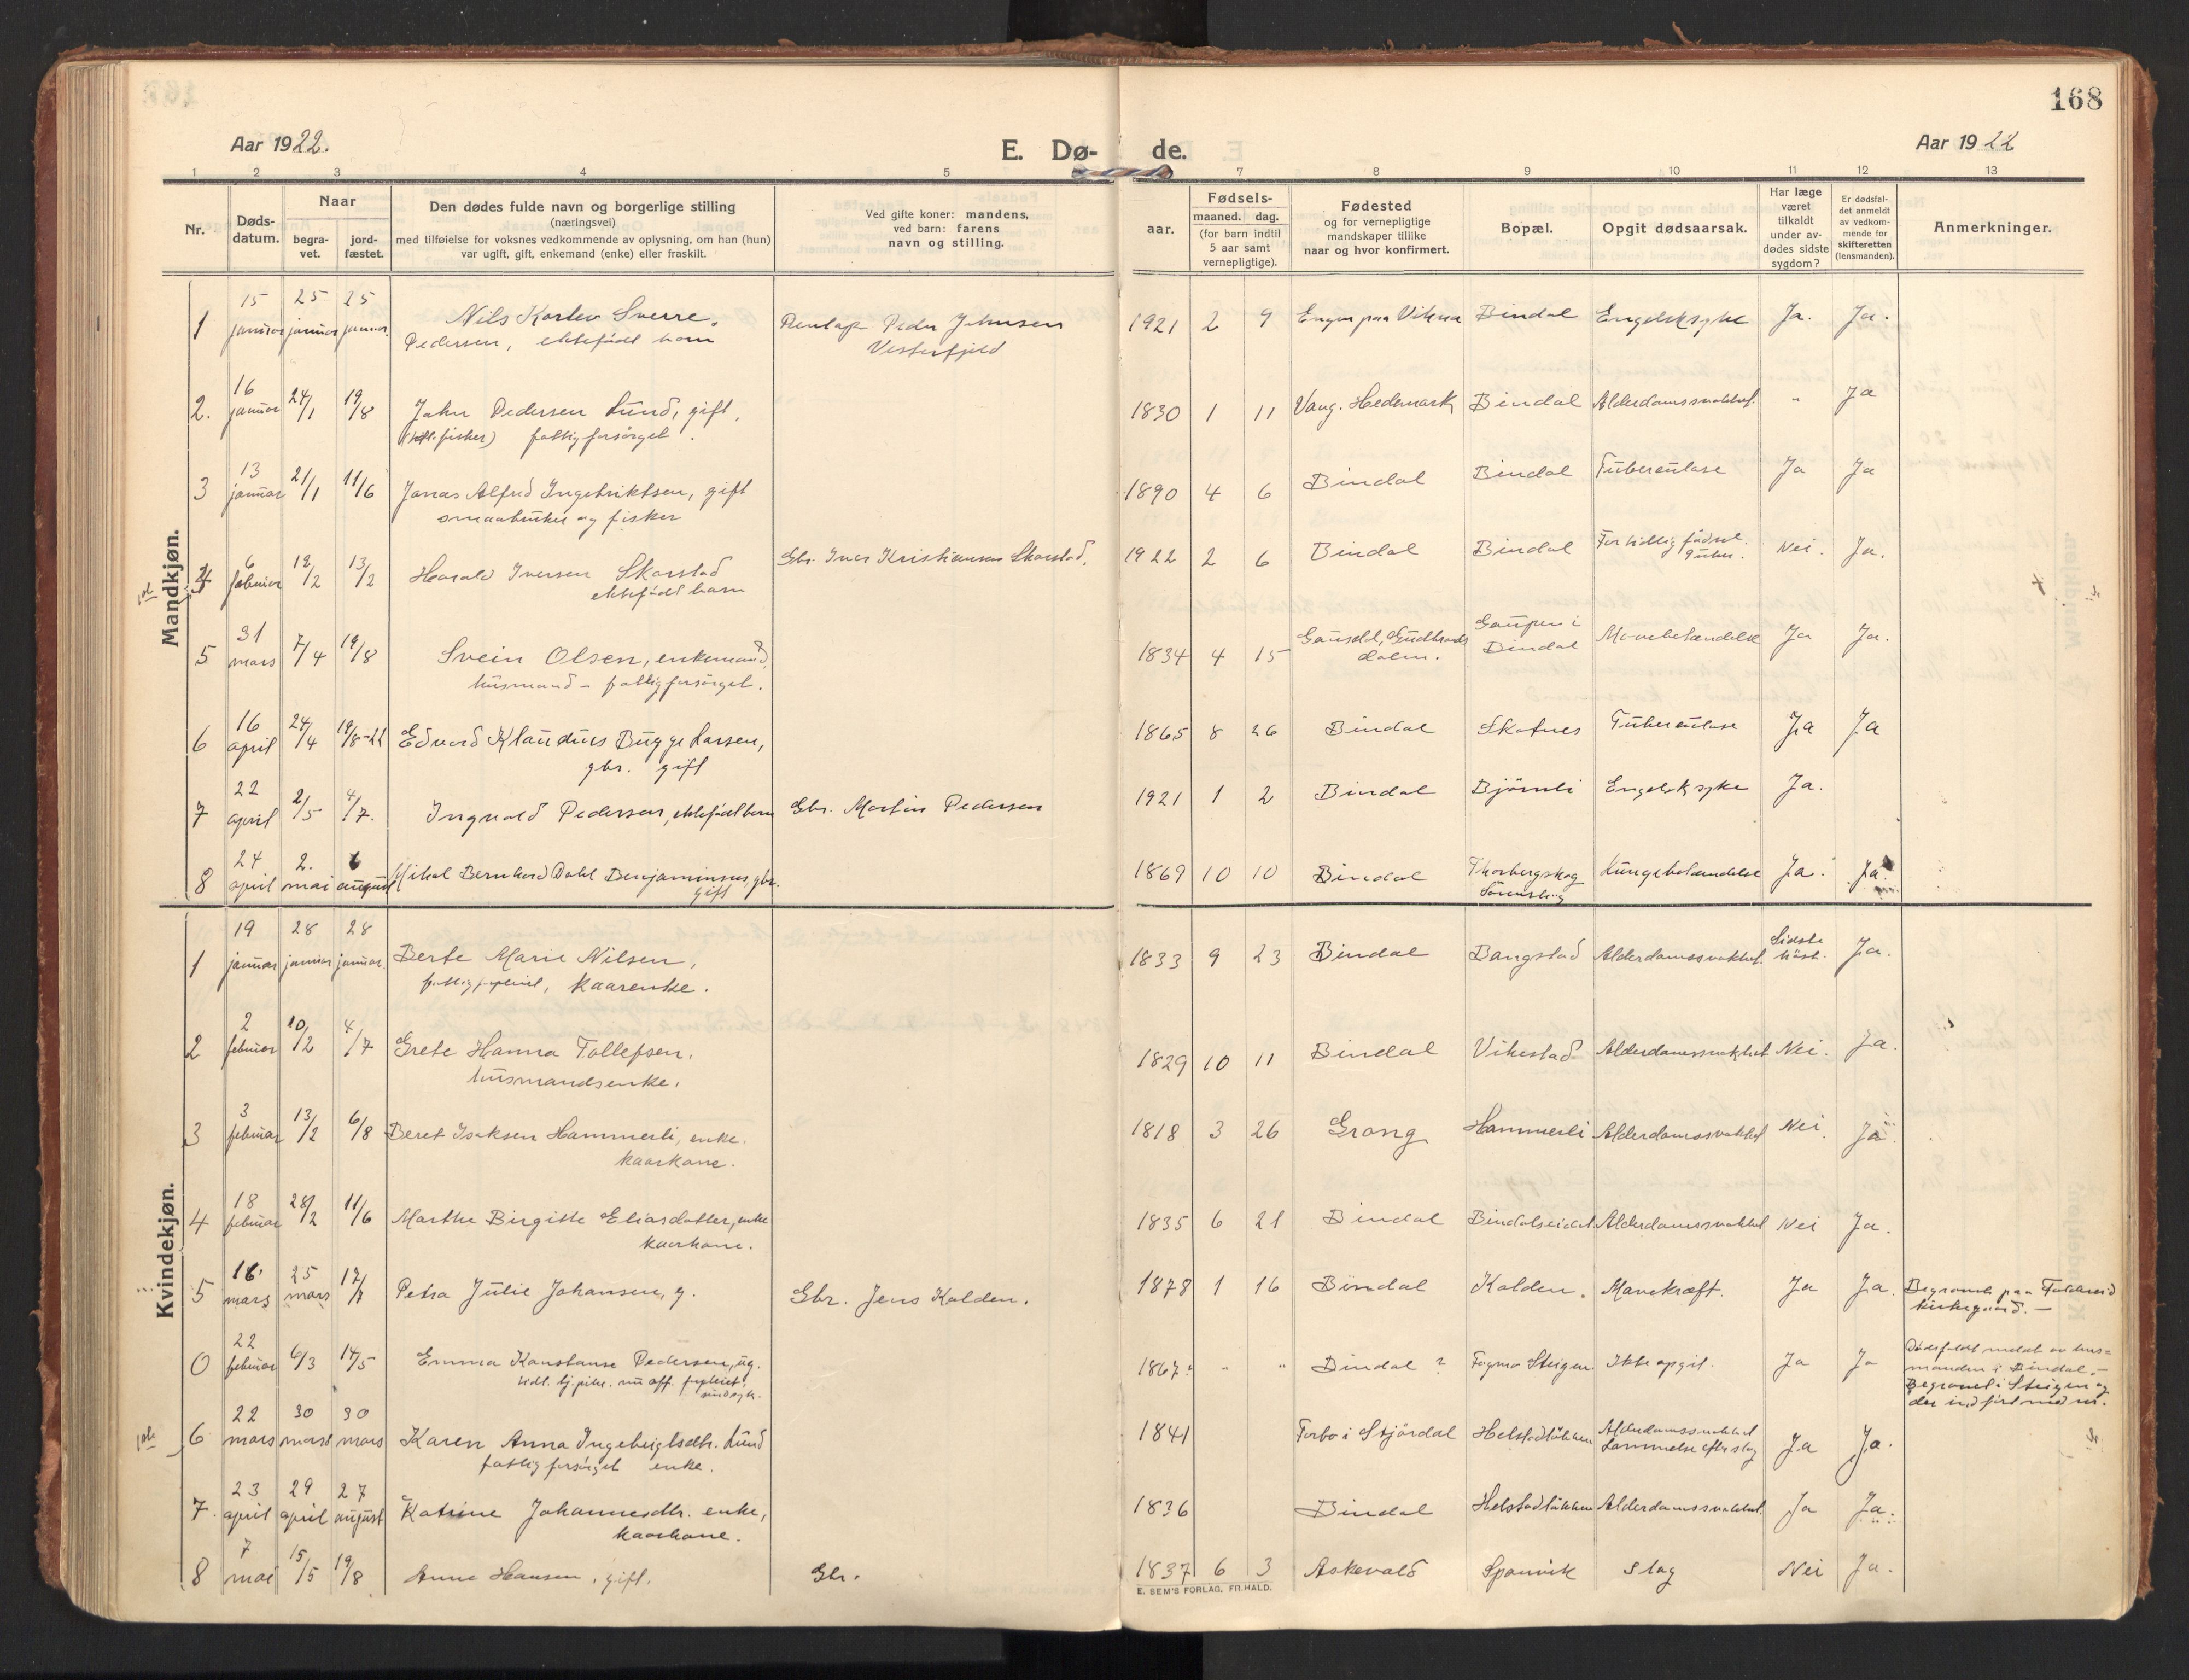 168
Aar 1922.
E. Dø-
de.
Aar 1922
1 2 3 4 5
7 8 9 10 11 12 13
Nr.
Døds-
datum.
Naar
begra-
vet.
jord-
fæstet.
Den dødes fulde navn og borgerlige stilling
(næringsvei)
med tilføielse for voksnes vedkommende av oplysning, om han (hun)
var ugift, gift, enkemand (enke) eller fraskilt.
Ved gifte koner: mandens,
ved barn: farens
navn og stilling.
aar.
Fødsels-
maaned. dag.
(for barn indtil
5 aar samt
vernepligtige).
Fødested
og for vernepligtige
mandskaper tillike
naar og hvor konfirmert.
Bopæl.
Opgit dødsaarsak.
Har læge
været
tilkaldt
under av-
dødes sidste
sygdom?
Er dødsfal-
det anmeldt
av vedkom-
mende for
skifteretten
(lensmanden).
Anmerkninger.
Mandkjøn.
15 25 25
1 januar januar januar. Nils Sverre
Pedersen, ektefødt barn
Peder Johnsen
Vesterfjeld
1921 2 9 Bindal Engelsksyke Ja. Ja.
16
2. januar 24/1 19/8 John Pedersen Lund, gift,
fisker) fattigforsörget.
1830 1 11 Vang. Hedemark Bindal Alderdomssvakhet. " Ja
13
3 januar 21/1 11/6 Jonas Alfred Ingebriktsen, gift
smaabruker og fisker
1890 4 6 Bindal Bindal Tuberculose Ja Ja
6
4 februar 12/2 13/2 Harald Iversen Skarstad
ektefödt barn
Gbr. Iver Kristiansen Skarstad.
1922 2 6 Bindal Bindal For tidlig födsel. Nei. Ja.
31
5 mars 7/4 19/8 Svein Olsen, enkemand,
husmand - fattigforsörget.
1834 4 15 Gausdal, Gudbrands
dalen.
Gaupen i
Bindal
Mavebetændelse Ja Ja.
16
6 april 24/4 19/8-22 Edvard Klaudius Bugge Larsen,
gbr. gift
1865 8 26 Bindal Skotnes Tuberculose Ja Ja
22
7 april 2/5 4/7. Ingvald Pedersen, ektefödt barn Gbr. Martin Pedersen
1921 1 2 Bindal Björnli Engelsk syke Ja.
24 2. 6
8 april mai august Mikal Bernhard Dahl Benjaminsen, gbr.
gift
1869 10 10 Bindal Thorbergskog Lungebetændelse Ja. Ja.
Kvindekjøn.
19 28 28
1 januar januar januar. Berte Marie Nilsen,
kaarenke.
1833 9 23 Bindal Bangstad Alderdomssvakhet. Sidste
höst. Ja.
2
2 februar 10/2 4/7 Grete Hanna Tollefsen,
husmandsenke.
1829 10 11 Bindal Vikestad Alderdomssvakhet Nei. Ja.
3
3 februar 13/2 6/8 Beret Isaksen Hammerli, enke.
kaarkone.
1818 3 26 Grong Hammerli Alderdomssvakhet Nei. Ja
18
4 februar 28/2 11/6 Marthe Birgitte Eliasdatter, enke
kaarkone.
1835 6 21 Bindal Bindalseidet Alderdomssvakhet Nei Ja.
16 25
5 mars mars Petra Julie Johansen, g. Gbr. Jens Kalden.
1878 1 16 Bindal Kalden. Mavekræft. Ja Ja. Begravet paa Foldereid
kirkegaard. -
22
0 februar 6/3 14/5 Emma Konstanse Pedersen, ug.
tidl. tj.pike. nu off. forpleiet,
sindssyk.
1867? " " Bindal? Steigen Ikke opgit. Ja Ja Dödsfaldet meldt av lens=
manden i Bindal. -
Begravet i Steigen og
der indfört med nr.
22 30 30
6 mars mars mars Karen Anna Ingebrigtsdtr. Lund
fattigforsörget enke.
1841 Forbo i Stjördal Helstadlökken Alderdomssvakhet
Lammelse efter slag Ja Ja.
23 29 27
7. april april august Katrine Johannesdtr. enke,
kaarkone.
1836 Bindal Helstadlökken Alderdomssvakhet Ja Ja.
7
8 mai 15/5 19/8 Anne Hansen, gift. Gbr.
1837 6 3 Askevold Spanvik Slag Nei Ja.
E. SEM'S FORLAG, FR.HALD.